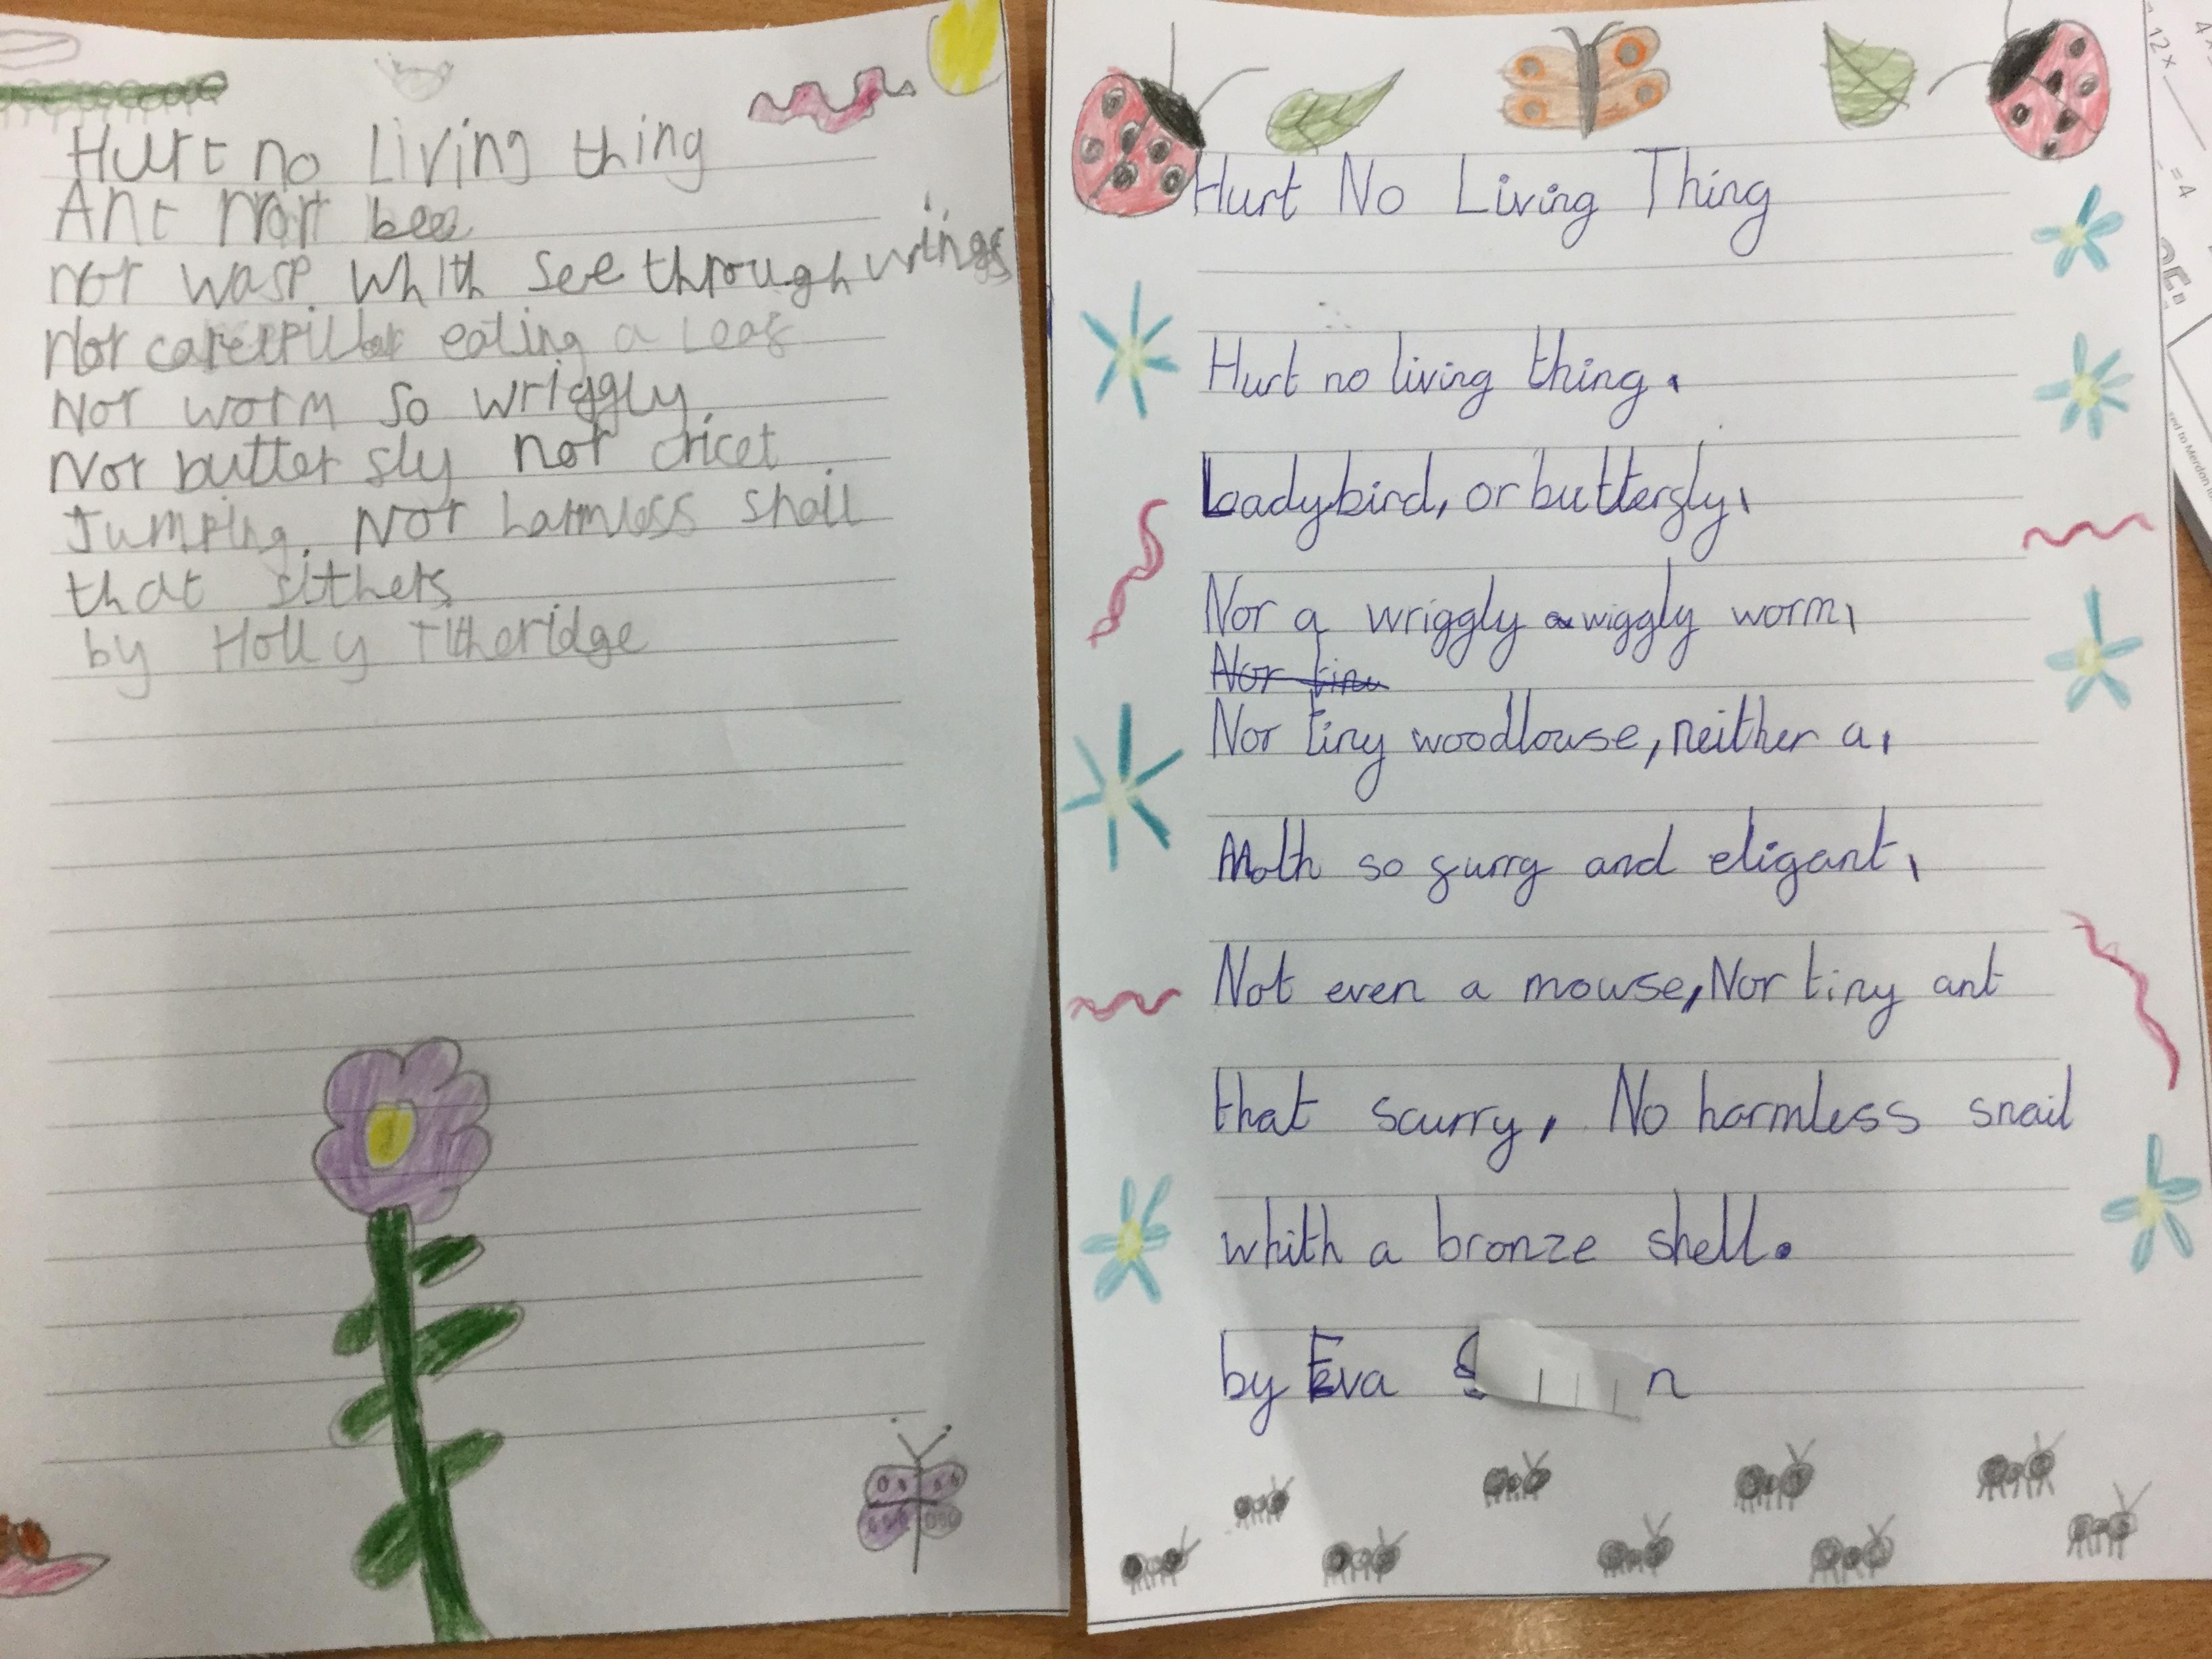 Hurt no Living thing
Ant Nor bee
nor wasp whith see through wings
Nor caterpillar eating a Leaf
Nor worm so wriggly.
Nor butterfly not cricet
Jumping. Nor harmless snail
that slithers
by Holly Titheridge
Hurt No Living Thing
Hurt no living thing.
Ladybird, or butterfly,
Nor a wriggly wiggly worm,
Nor tiny woodlouse, neither a,
Moth so furry and eligant,
Not even a mouse, Nor tiny ant
that scurry, No harmless snail
whith a bronze shell.
by Eva
12x
=4